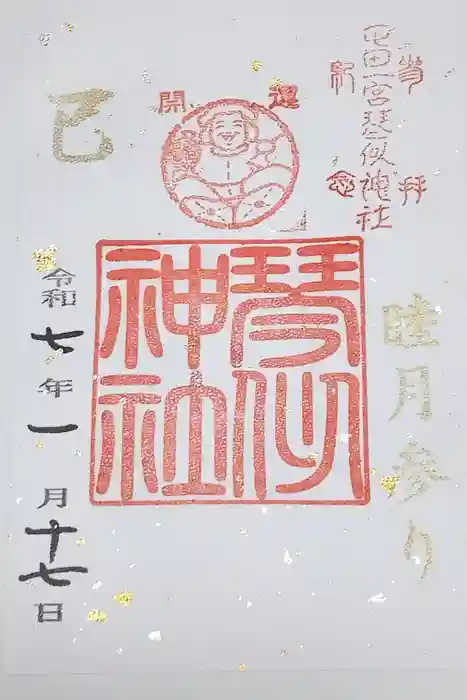 参拝
屯田一宮琴似神社
記念
開運
睦月参り
琴似
神社
巳
令和七年一月十七日